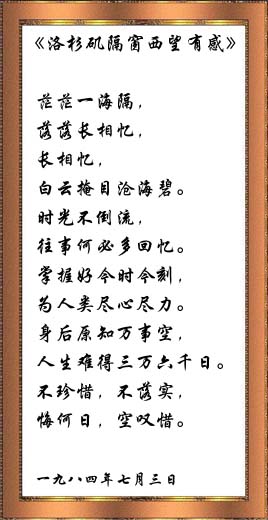 《洛杉矶隔窗西望有感》
茫茫一海隔，
落落长相忆，
长相忆，
白云掩目沧海碧。
时光不倒流，
往事何必多回忆。
掌握好今时今刻，
为人类尽心尽力。
身后原知万事空，
人生难得三万六千日。
不珍惜，不落实，
悔何日，空叹惜。
一九八四年七月三日